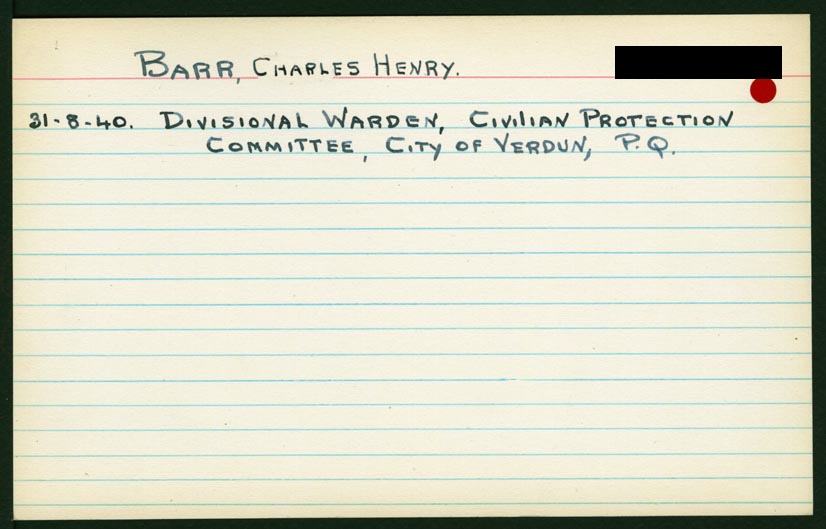 BARR, CHARLES HENRY.
31-8-40. DIVISIONAL WARDEN, CIVILIAN PROTECTION
COMMITTEE, CITY OF VERDUN, P.Q.